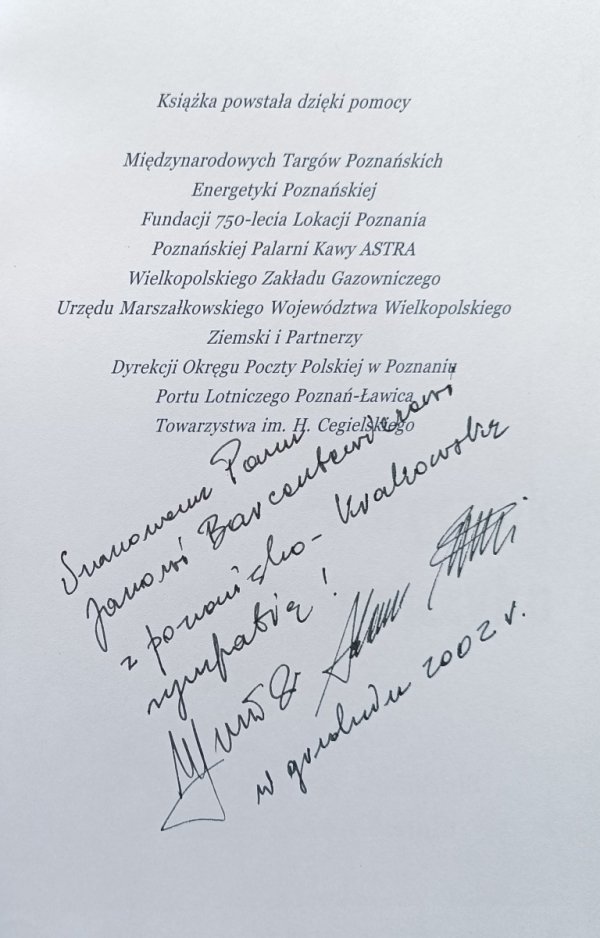 Książka powstała dzięki pomocy
Międzynarodowych Targów Poznańskich
Energetyki Poznańskiej
Fundacji 750-lecia Lokacji Poznania
Poznańskiej Palarni Kawy ASTRA
Wielkopolskiego Zakładu Gazowniczego
Urzędu Marszałkowskiego Województwa Wielkopolskiego
Ziemski i Partnerzy
Dyrekcji Okręgu Poczty Polskiej w Poznaniu
Portu Lotniczego Poznań-Ławica
Towarzystwa im. H. Cegielskiego
Szanownemu Panu
Janowi Barcentewiczowi
z poznańsko-krakowską
sympatią!
w grudniu 2002 r.